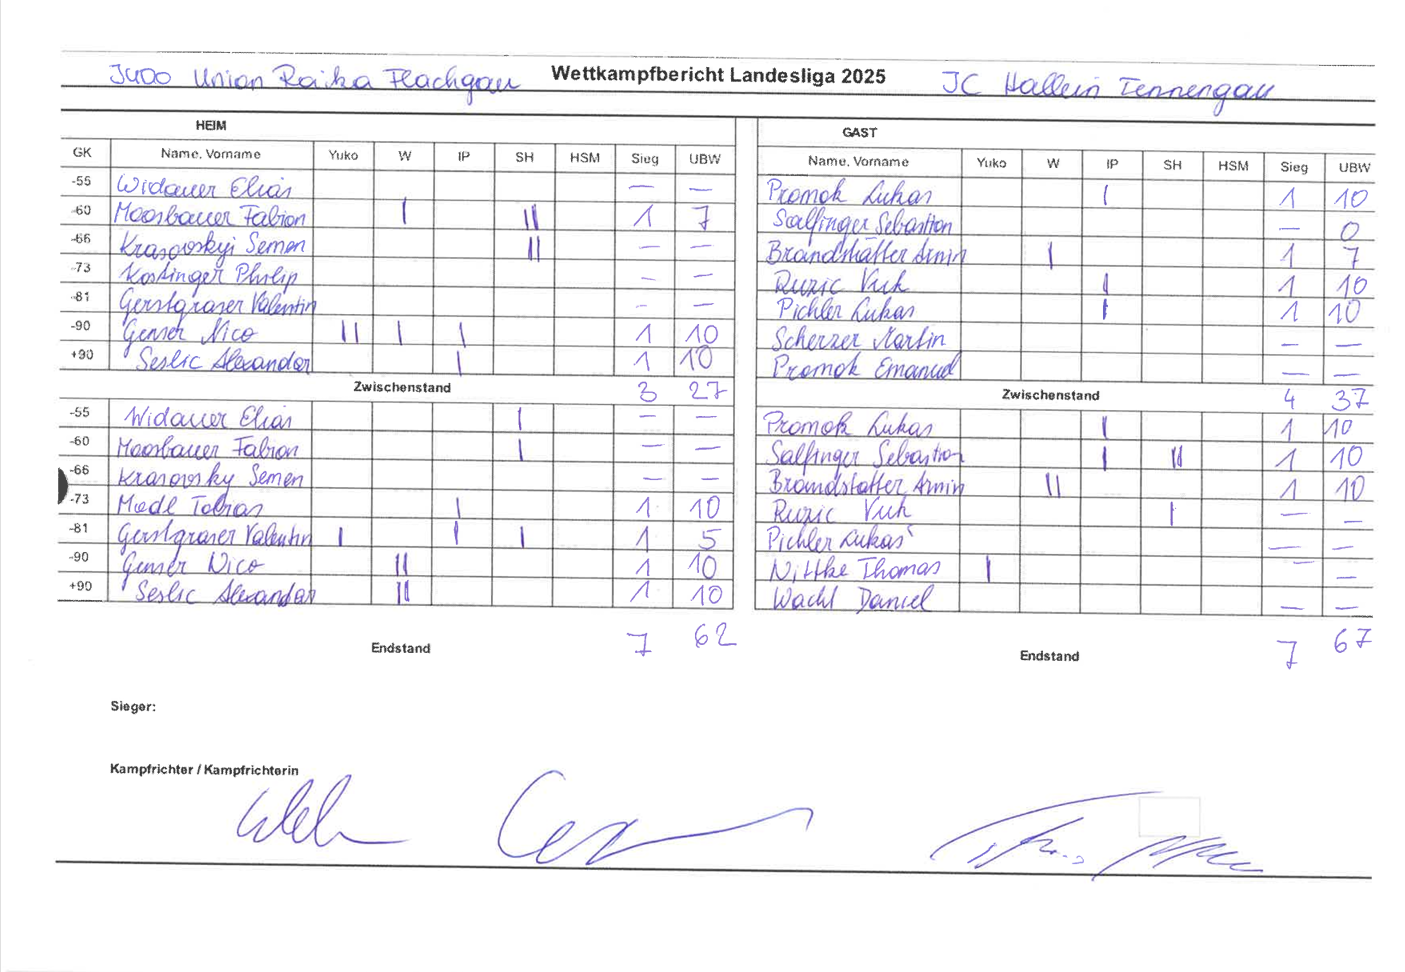 Judo Union Raika Flachgau Wettkampfbericht Landesliga 2025 JC Hallein Tennengau
HEIM GAST
GK Name, Vorname Yuko W IP SH HSM Sieg UBW Name, Vorname Yuko W IP SH HSM Sieg UBW
-55 Widauer Elias — — Promok Lukas I 1 10
-60 Moosbauer Fabian I II 1 7 Salfinger Sebastian — 0
-66 Krasovskyi Semen II — — Brandstätter Armin I 1 7
-73 Kostinger Philip — — Ruzic Vuk I 1 10
-81 Gerstgraser Valentin — — Pichler Lukas I 1 10
-90 Genser Nico II I I 1 10 Scherzer Martin — —
+90 Seslic Alexandar I 1 10 Promok Emanuel — —
Zwischenstand 3 27 Zwischenstand 4 37
-55 Widauer Elias I — — Promok Lukas I 1 10
-60 Moosbauer Fabian I — — Salfinger Sebastian I II 1 10
-66 Krasovsky Semen — — Brandstätter Armin II 1 10
-73 Miedl Tobias I 1 10 Ruzic Vuk I — —
-81 Gerstgraser Valentin I I I 1 5 Pichler Lukas — —
-90 Genser Nico II 1 10 Nittke Thomas I — —
+90 Seslic Alexandar II 1 10 Wachl Daniel — —
Endstand 7 62 Endstand 7 67
Sieger:
Kampfrichter / Kampfrichterin